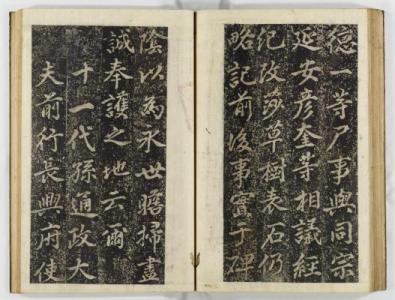 德一等尸事與同宗
延安彦奎等相議經
紀改莎草樹表石仍
略記前後事實于碑
陰以為永世瞻掃盡
誠奉護之地云爾
十一代孫通政大
夫前行長興府使